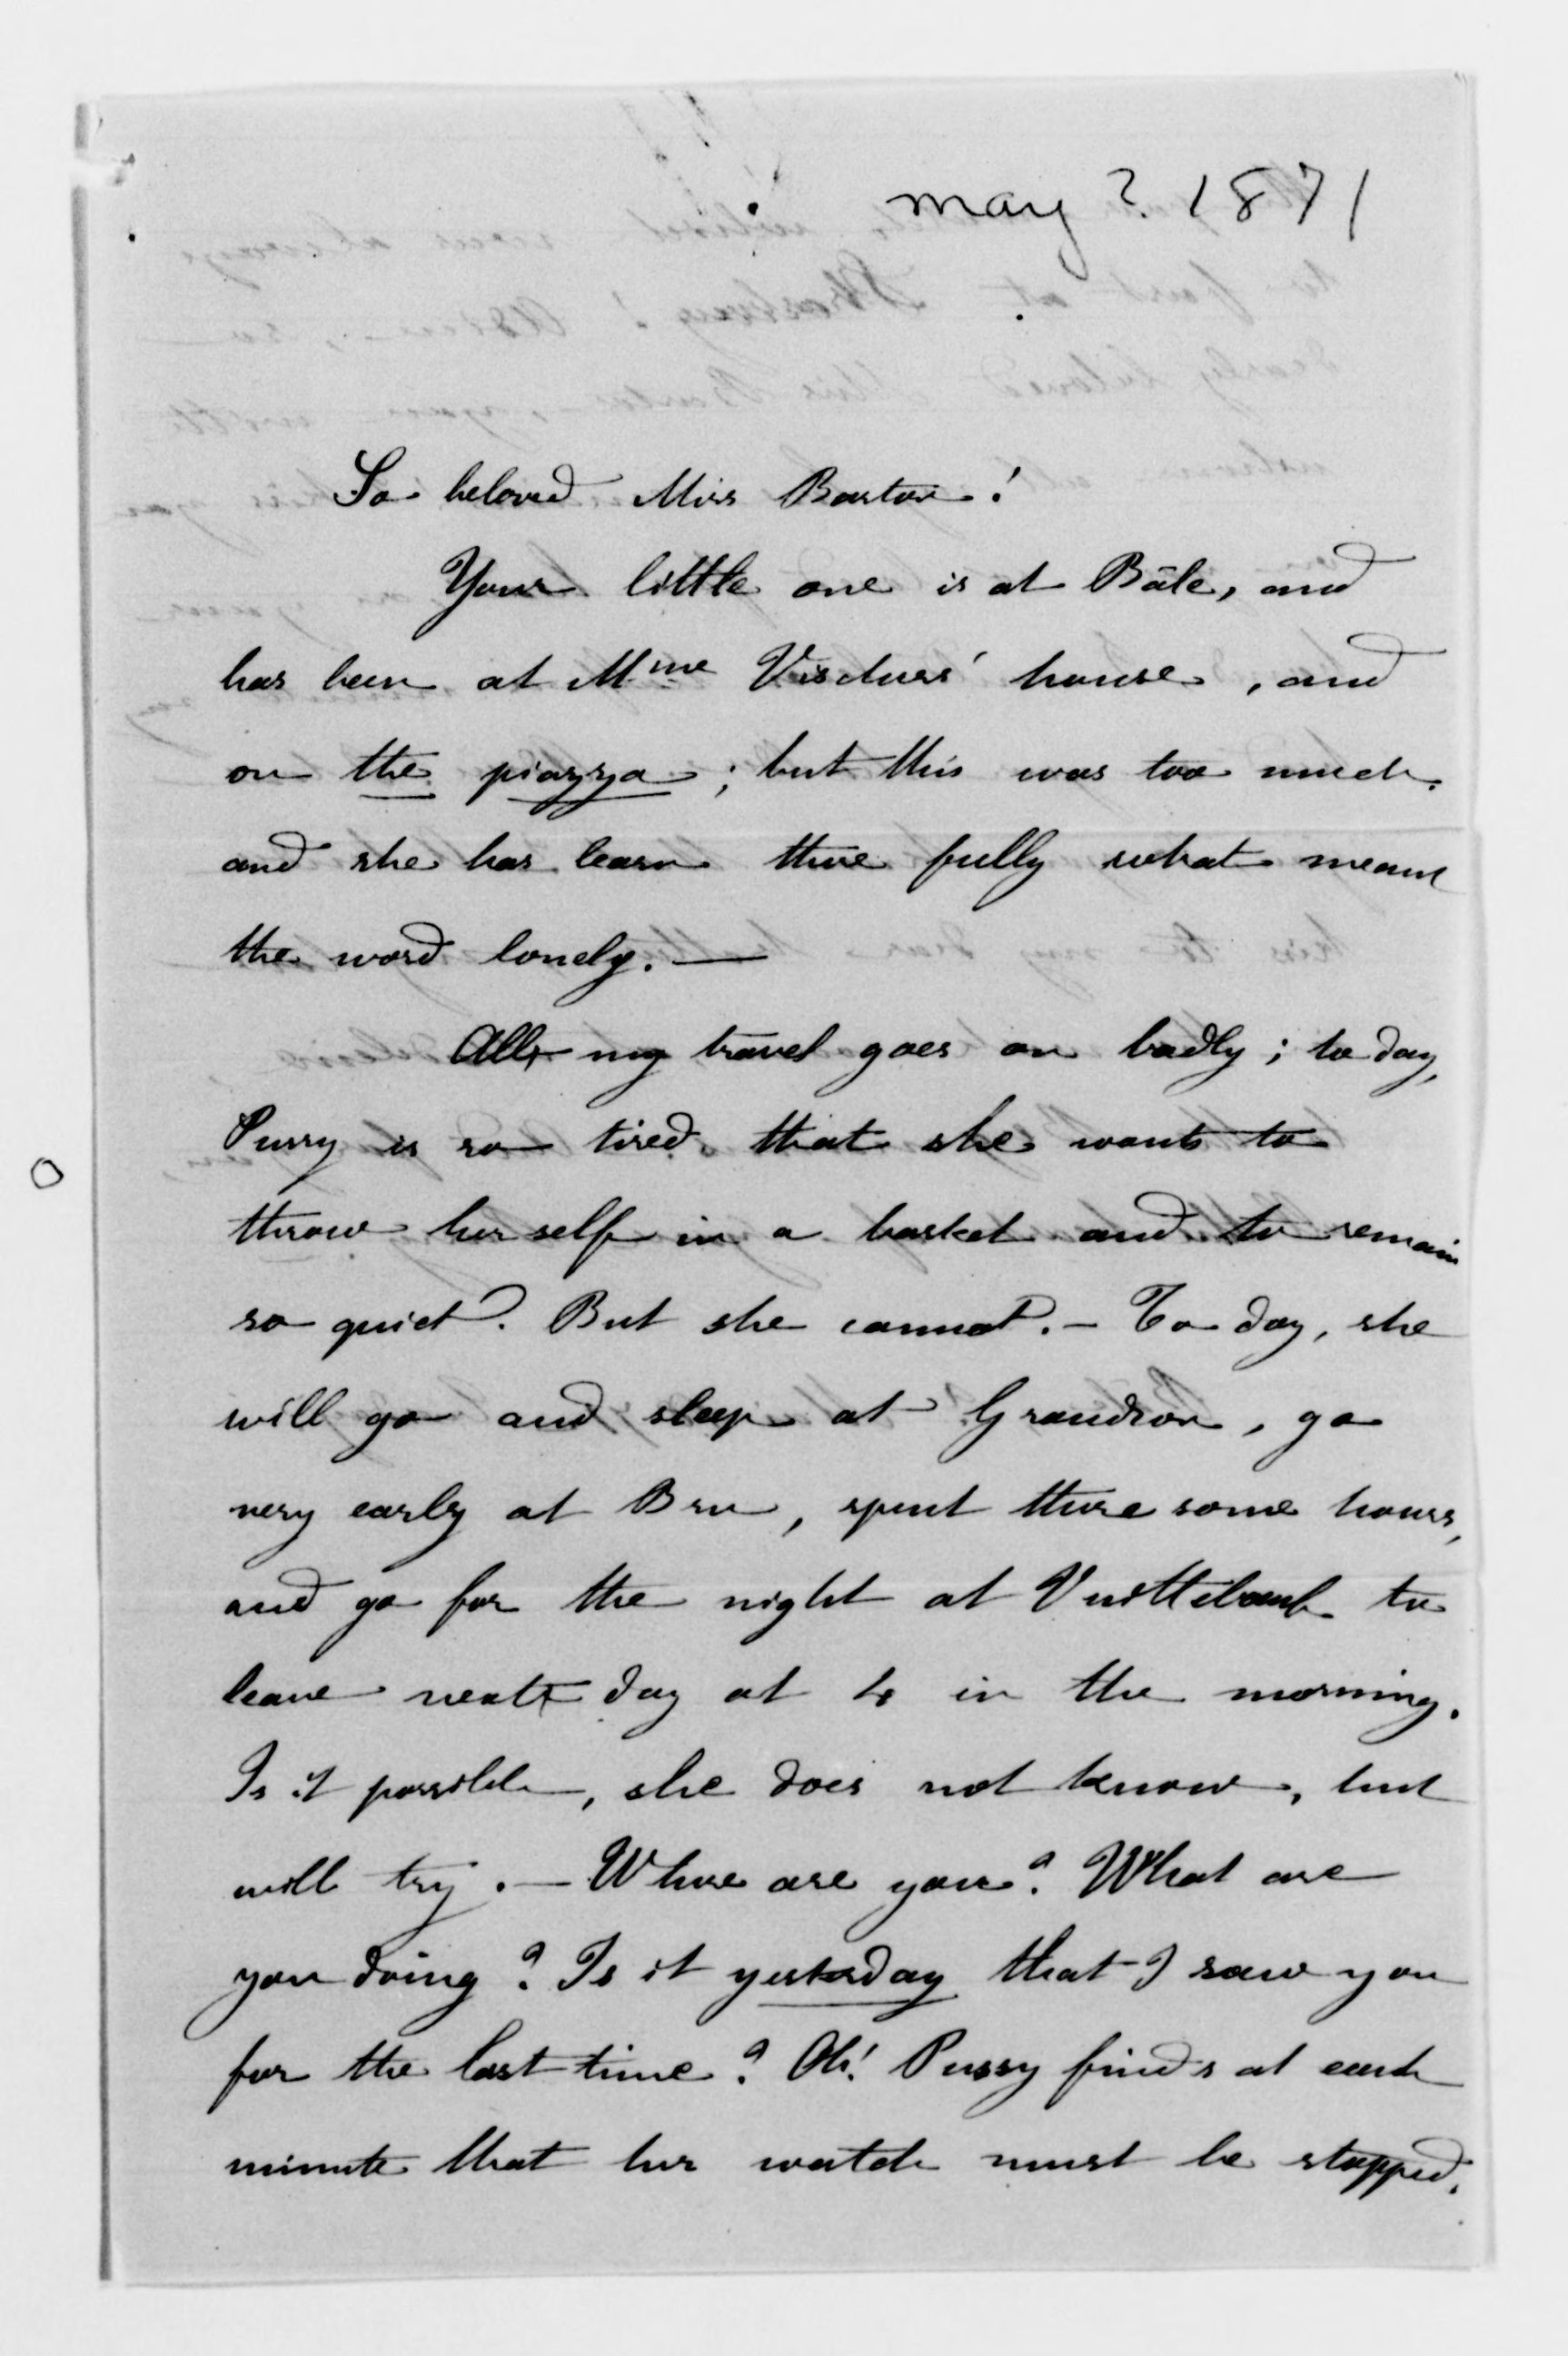 may ? 1871
So beloved Miss Barton!
Your little one is at Bâle, and
has been at Mme house, and
on the piazza; but this was too much.
and she has learn there fully what meant
the word lonely. —
All my travel goes on badly; to day,
Pussy is so tired that she wants to
throw her self in a basket and to remain
so quiet. But she cannot. — To day, she
will go and sleep at Grandson, go
very early at , spent there some hours,
and go for the night at to
leave next day at 4 in the morning.
Is it possible, she does not know, but
will try. — Where are you? What are
you doing? Is it yesterday that I saw you
for the last time? Oh! Pussy finds at each
minute that her watch must be stopped.